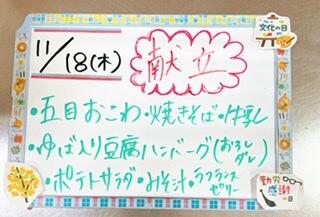 文化の日
11/18(木)
献立
・五目おこわ・焼きそば・牛乳
・ゆば入り豆腐ハンバーグ(おろしダレ)
・ポテトサラダ・みそ汁・ラフランスゼリー
勤労感謝の日